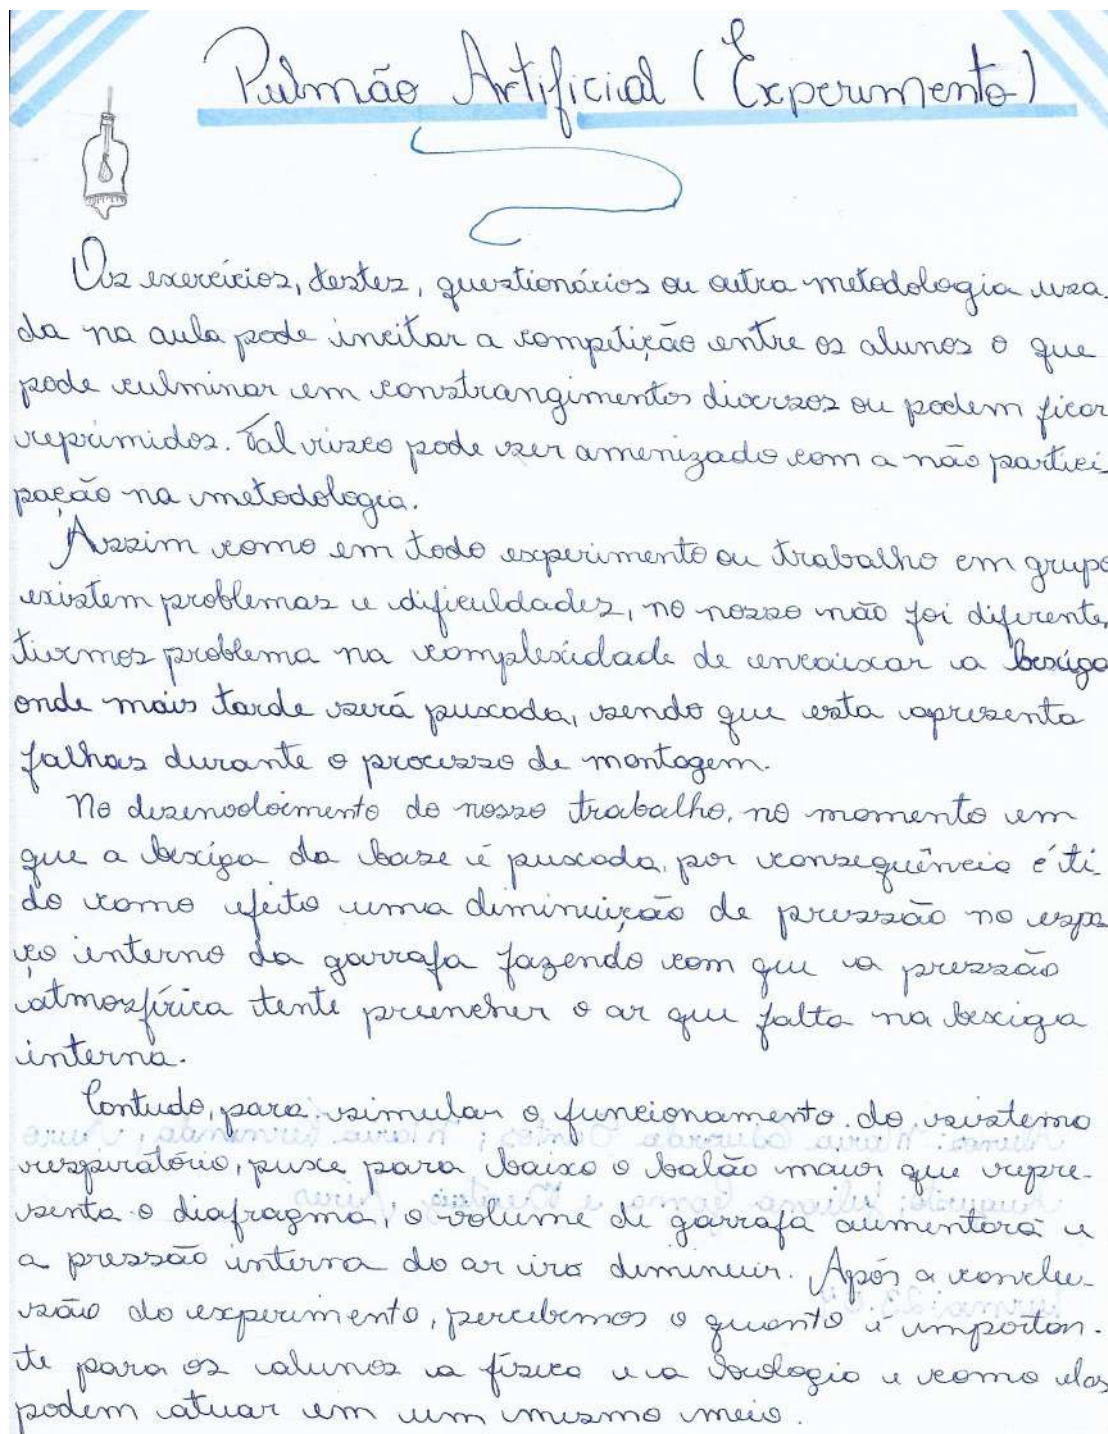 Pulmão Artificial (Experimento)
Os exercícios, testes, questionários ou outra metodologia usa-
da na aula pode incitar a competição entre os alunos o que
pode culminar em constrangimentos diversos ou podem ficar
reprimidos. Tal risco pode ser amenizado com a não partici
pação na metodologia.
Assim como em todo experimento ou trabalho em grupo
existem problemas e dificuldades, no nosso não foi diferente,
tivemos problema na complexidade de encaixar a bexiga
onde mais tarde será puxada, sendo que esta apresenta
falhas durante o processo de montagem.
No desenvolvimento do nosso trabalho, no momento em
que a bexiga da base é puxada, por consequência é ti-
do como efeito uma diminuição de pressão no espa-
ço interno da garrafa fazendo com que a pressão
atmosférica tente preencher o ar que falta na bexiga
interna.
Contudo, para simular o funcionamento do sistema
respiratório, puxe para baixo o balão maior que repre-
senta o diafragma, o volume de garrafa aumentará e
a pressão interna do ar irá diminuir. Após a conclu-
são do experimento, percebemos o quanto é importan-
te para os alunos a física e a biologia e como elas
podem atuar em um mesmo meio.